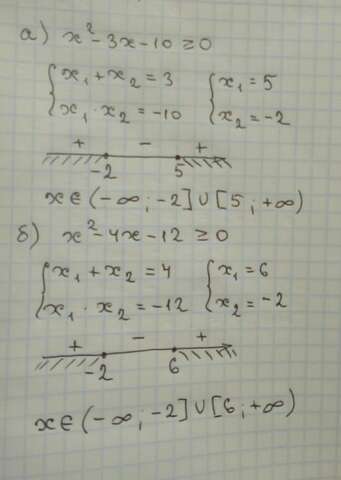 а) x² - 3x - 10 ≥ 0
{ x₁ + x₂ = 3 { x₁ = 5
{ x₁ · x₂ = -10 { x₂ = -2
+ - +
-2 5
x ∈ (-∞; -2] ∪ [5; +∞)
б) x² - 4x - 12 ≥ 0
{ x₁ + x₂ = 4 { x₁ = 6
{ x₁ · x₂ = -12 { x₂ = -2
+ - +
-2 6
x ∈ (-∞; -2] ∪ [6; +∞)